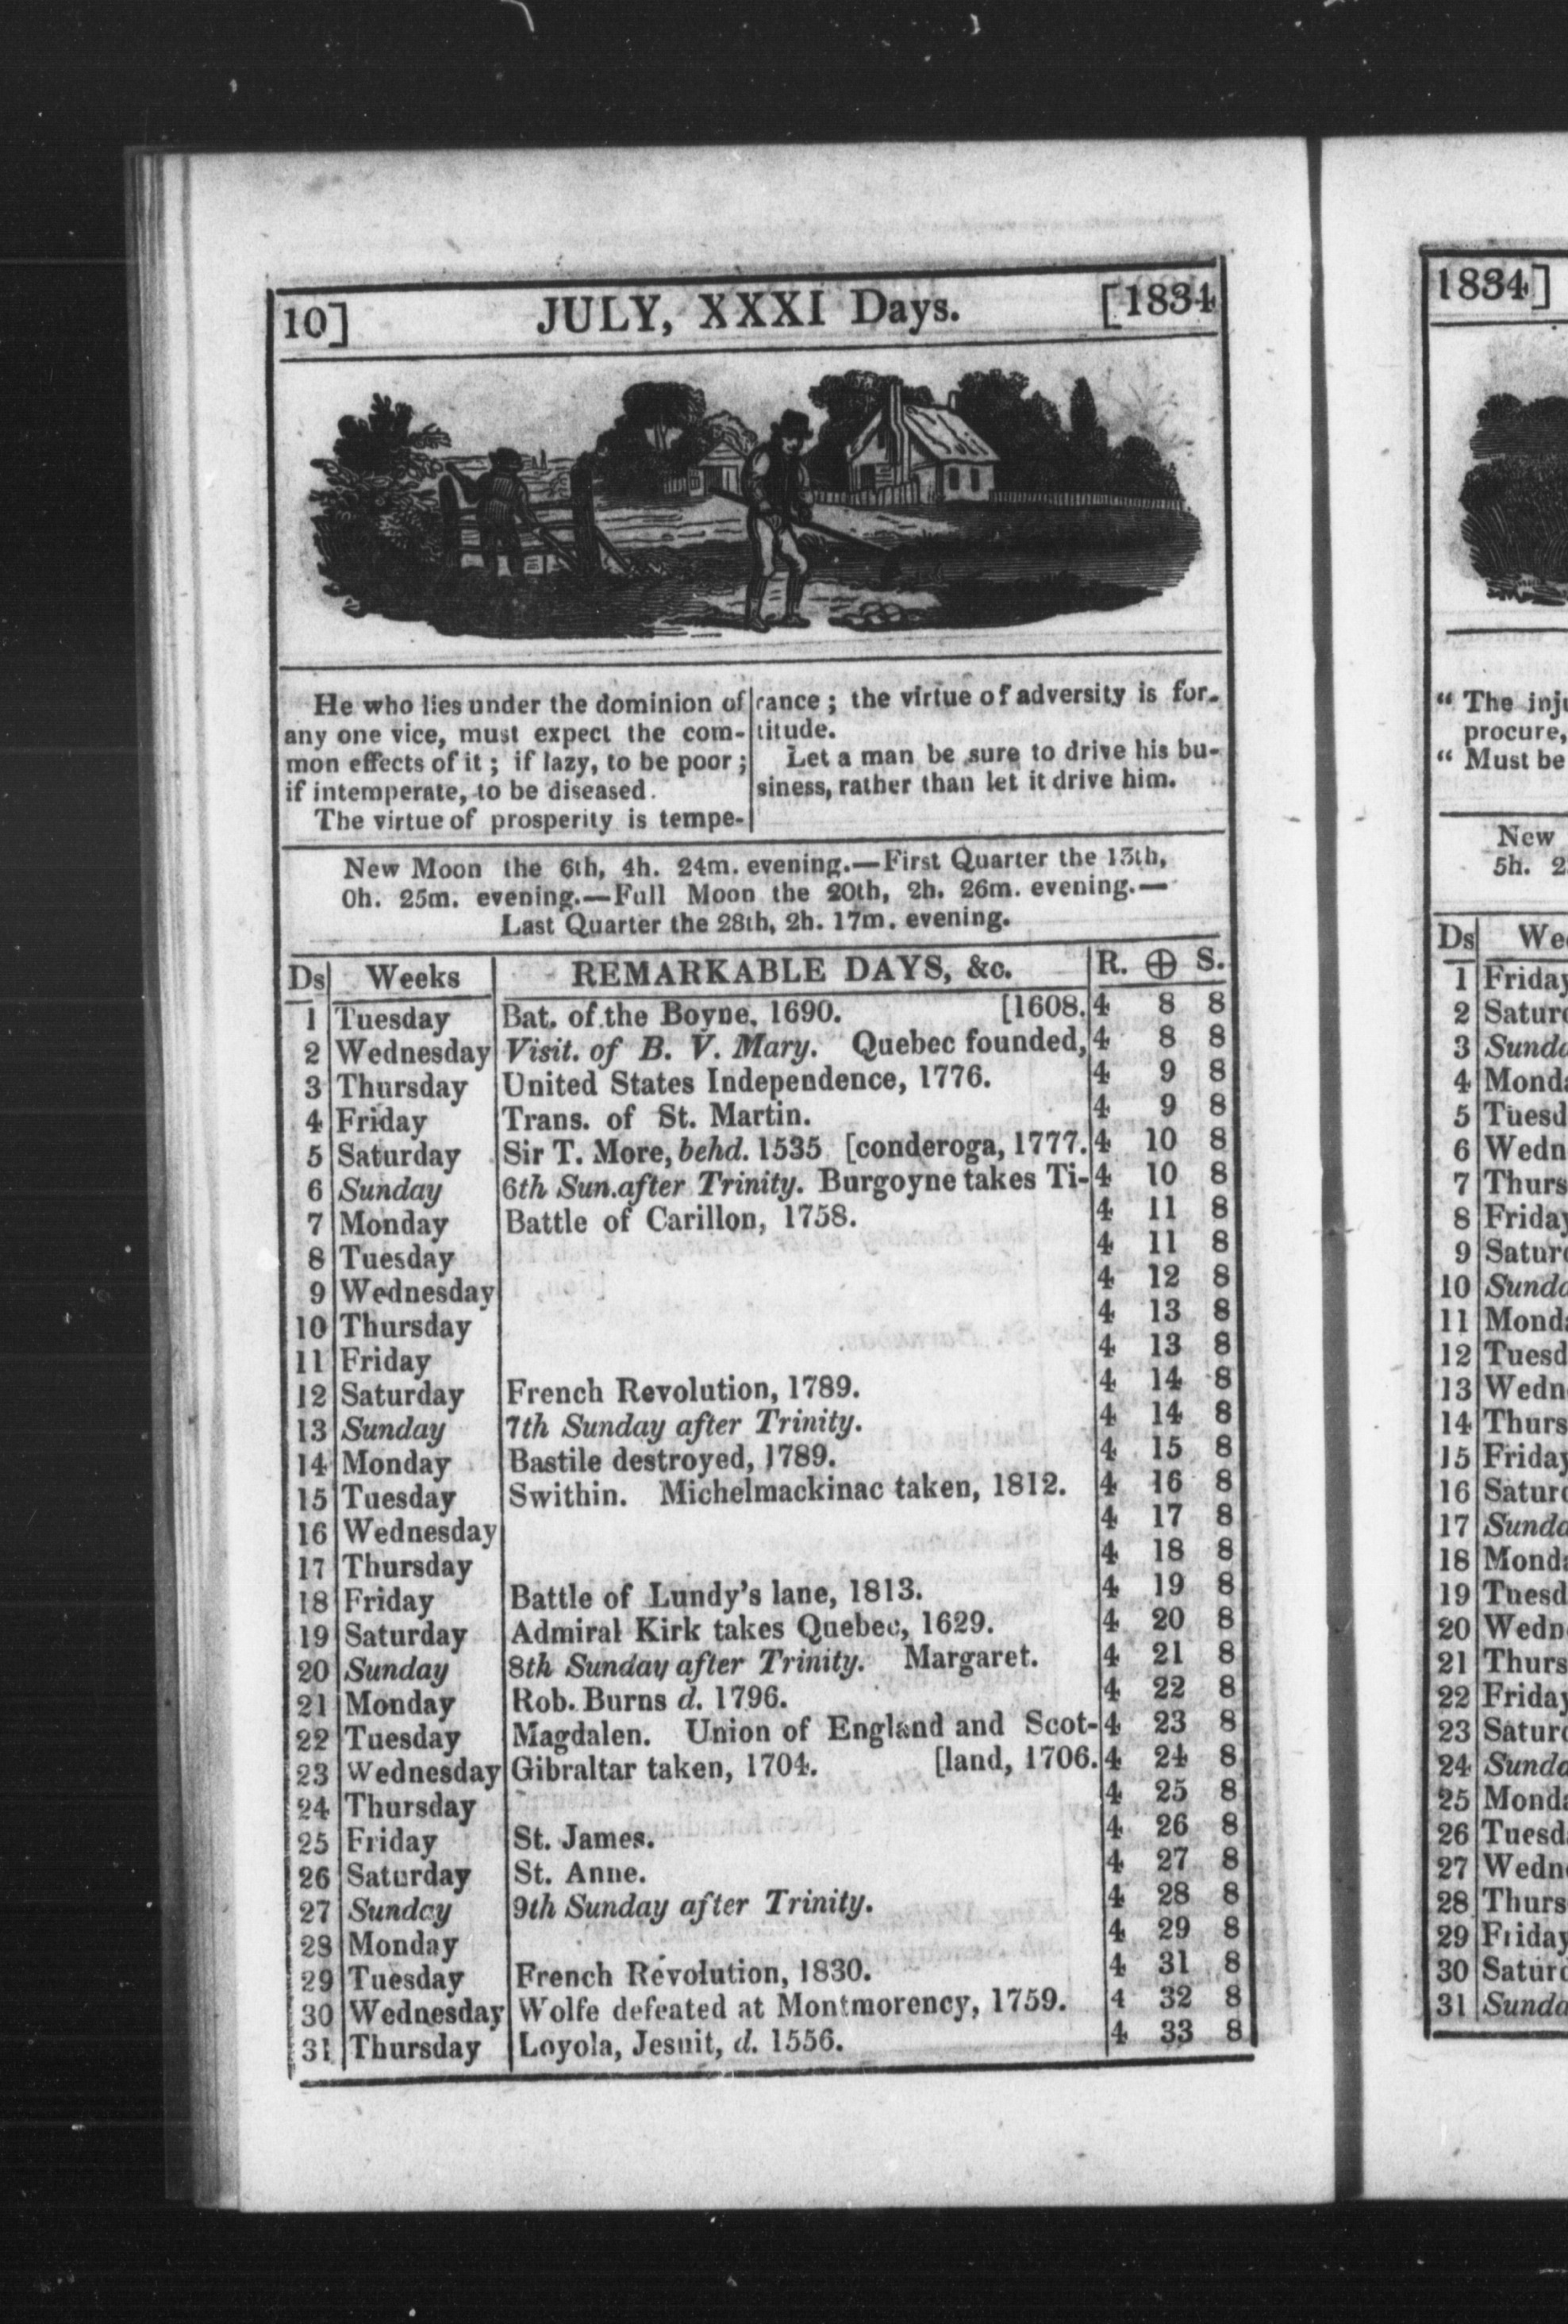 10] JULY, XXXI Days. [1834
He who lies under the dominion of
any one vice, must expect the com-
mon effects of it; if lazy, to be poor;
if intemperate, to be diseased.
The virtue of prosperity is tempe-
rance; the virtue of adversity is for-
titude.
Let a man be sure to drive his bu-
siness, rather than let it drive him.
New Moon the 6th, 4h. 24m. evening.—First Quarter the 13th,
0h. 25m. evening.—Full Moon the 20th, 2h. 26m. evening.—
Last Quarter the 28th, 2h. 17m. evening.
Ds Weeks REMARKABLE DAYS, &c. R. ⊕ S.
1 Tuesday Bat. of the Boyne, 1690. [1608. 4 8 8
2 Wednesday Visit. of B. V. Mary. Quebec founded, 4 8 8
3 Thursday United States Independence, 1776. 4 9 8
4 Friday Trans. of St. Martin. 4 9 8
5 Saturday Sir T. More, behd. 1535 [conderoga, 1777. 4 10 8
6 Sunday 6th Sun.after Trinity. Burgoyne takes Ti- 4 10 8
7 Monday Battle of Carillon, 1758. 4 11 8
8 Tuesday 4 11 8
9 Wednesday 4 12 8
10 Thursday 4 13 8
11 Friday 4 13 8
12 Saturday French Revolution, 1789. 4 14 8
13 Sunday 7th Sunday after Trinity. 4 14 8
14 Monday Bastile destroyed, 1789. 4 15 8
15 Tuesday Swithin. Michelmackinac taken, 1812. 4 16 8
16 Wednesday 4 17 8
17 Thursday 4 18 8
18 Friday Battle of Lundy's lane, 1813. 4 19 8
19 Saturday Admiral Kirk takes Quebec, 1629. 4 20 8
20 Sunday 8th Sunday after Trinity. Margaret. 4 21 8
21 Monday Rob. Burns d. 1796. 4 22 8
22 Tuesday Magdalen. Union of England and Scot- 4 23 8
23 Wednesday Gibraltar taken, 1704. [land, 1706. 4 24 8
24 Thursday 4 25 8
25 Friday St. James. 4 26 8
26 Saturday St. Anne. 4 27 8
27 Sunday 9th Sunday after Trinity. 4 28 8
28 Monday 4 29 8
29 Tuesday French Revolution, 1830. 4 31 8
30 Wednesday Wolfe defeated at Montmorency, 1759. 4 32 8
31 Thursday Loyola, Jesuit, d. 1556. 4 33 8
1834]
" The inju
procure,
" Must be
New
5h. 2
Ds Wee
1 Friday
2 Saturd
3 Sunda
4 Monda
5 Tuesd
6 Wedn
7 Thurs
8 Friday
9 Saturd
10 Sunda
11 Monda
12 Tuesd
13 Wedn
14 Thurs
15 Friday
16 Saturd
17 Sunda
18 Monda
19 Tuesd
20 Wedn
21 Thurs
22 Friday
23 Saturd
24 Sunda
25 Monda
26 Tuesd
27 Wedn
28 Thurs
29 Friday
30 Saturd
31 Sunda